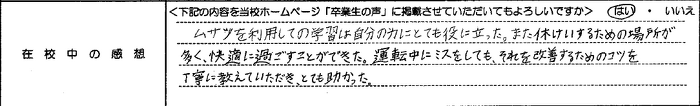 <下記の内容を当校ホームページ「卒業生の声」に掲載させていただいてもよろしいですか> はい ・ いいえ
在校中の感想
ムサシを利用しての学習は自分の力にとても役に立った。また休けいするための場所が
多く、快適に過ごすことができた。運転中にミスをしても、それを改善するためのコツを
丁寧に教えていただき、とても助かった。